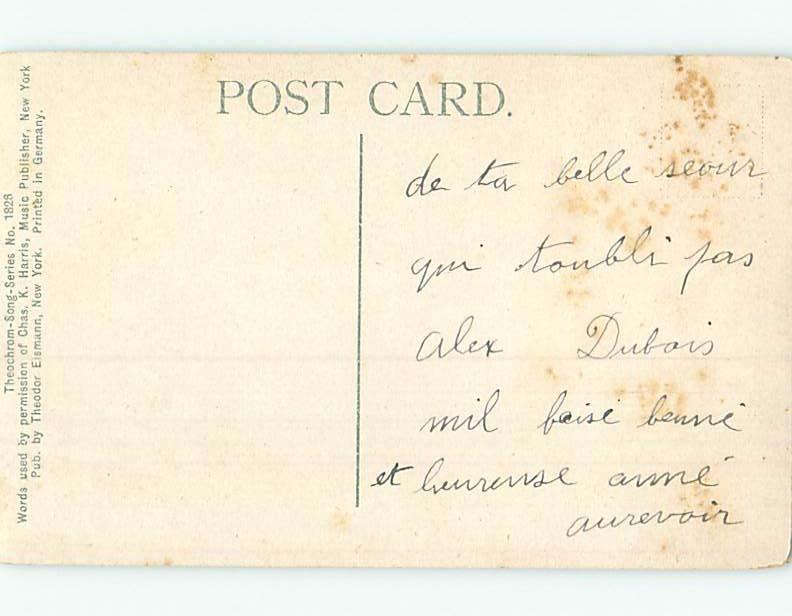 POST CARD.
Theochrom-Song-Series No. 1828
Words used by permission of Chas. K. Harris, Music Publisher, New York
Pub. by Theodor Eismann, New York. Printed in Germany.
de ta belle seour
qui toubli pas
Alex Dubois
mil beise benné
et heureuse anné
aurevoir